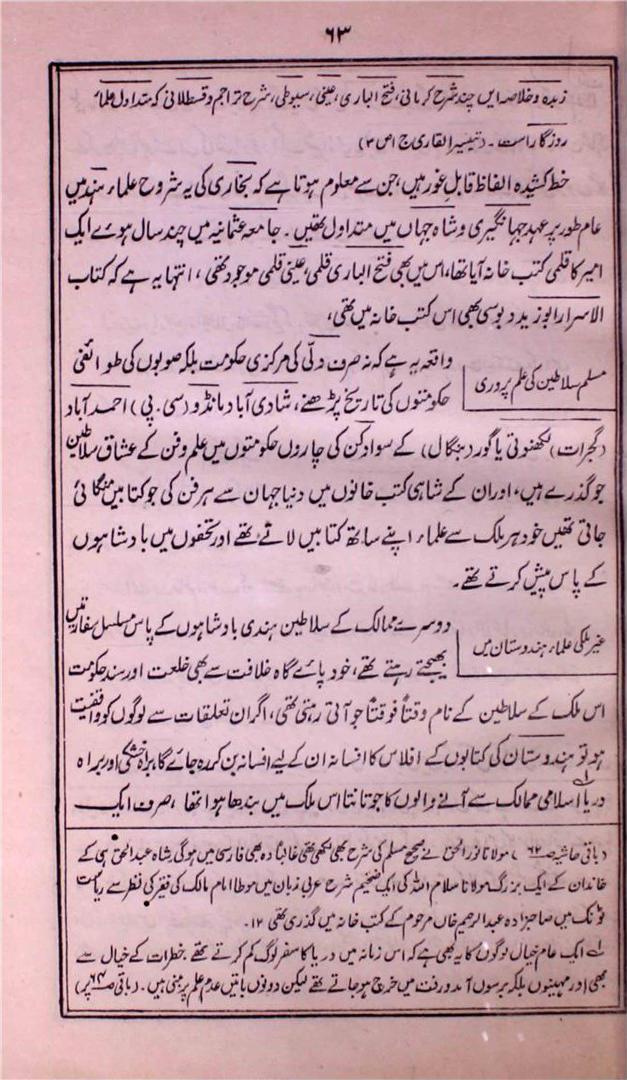 ۶۳
زبدہ و خلاصہ ایں چند شرح کرمانی، فتح الباری، عینی، سیوطی، شرح تراجم و قسطلانی کہ متداول علماء
روزگار است۔ (تیسیر القاری ج ۱ ص ۳)
خط کشیدہ الفاظ قابلِ غور ہیں، جن سے معلوم ہوتا ہے کہ بخاری کی یہ شروح علماء ہند میں
عام طور پر عہد جہانگیری و شاہ جہاں میں متداول تھیں۔ جامعہ عثمانیہ میں چند سال ہوئے ایک
امیر کا قلمی کتب خانہ آیا تھا، اس میں بھی فتح الباری قلمی، عینی قلمی موجود تھی، انتہا یہ ہے کہ کتاب
الاسرار ابو زید دبوسی بھی اس کتب خانہ میں تھی،
مسلم سلاطین کی علم پروری
واقعہ یہ ہے کہ نہ صرف دلّی کی مرکزی حکومت بلکہ صوبوں کی طوائفی
حکومتوں کی تاریخ پڑھئے، شادی آباد مانڈو (سی۔پی) احمد آباد
(گجرات) لکھنوتی یا گور (بنگال) کے سوا دکن کی چاروں حکومتوں میں علم و فن کے عشاق سلاطین
جو گذرے ہیں، اور ان کے شاہی کتب خانوں میں دنیا جہان سے ہر فن کی جو کتابیں منگائی
جاتی تھیں خود ہر ملک سے علماء اپنے ساتھ کتابیں لاتے تھے اور تحفوں میں بادشاہوں
کے پاس پیش کرتے تھے۔
غیر ملکی علماء ہندوستان میں
دوسرے ممالک کے سلاطین ہندی بادشاہوں کے پاس مسلسل سفارتیں
بھیجتے رہتے تھے، خود پائے گاہ خلافت سے بھی خلعت اور سند حکومت
اس ملک کے سلاطین کے نام وقتاً فوقتاً جو آتی رہتی تھی، اگر ان تعلقات سے لوگوں کو واقفیت
ہو تو ہندوستان کی کتابوں کے افلاس کا افسانہ ان کے لیے افسانہ بن کر رہ جائے گا، براہ خشکی اور براہ
دریا ۱ اسلامی ممالک سے آنے والوں کا جو تانتا اس ملک میں بندھا ہوا تھا، صرف ایک
(باقی حاشیہ ص ۶۲) مولانا نور الحق نے صحیح مسلم کی شرح بھی لکھی تھی غالباً وہ بھی فارسی میں ہوگی شاہ عبدالحق ہی کے
خاندان کے ایک بزرگ مولانا سلام اللہ کی ایک ضخیم شرح عربی زبان میں موطا امام مالک کی فقیر کی نظر سے ریاست
ٹونک میں صاحبزادہ عبدالرحیم خاں مرحوم کے کتب خانہ میں گذری تھی ۱۲۔
۱ ایک عام خیال لوگوں کا یہ بھی ہے کہ اس زمانہ میں دریا کا سفر لوگ کم کرتے تھے خطرات کے خیال سے
بھی اور مہینوں بلکہ برسوں آمد و رفت میں خرچ ہو جاتے تھے لیکن دونوں باتیں عدم علم پر مبنی ہیں۔ (باقی ص ۶۴ پر)